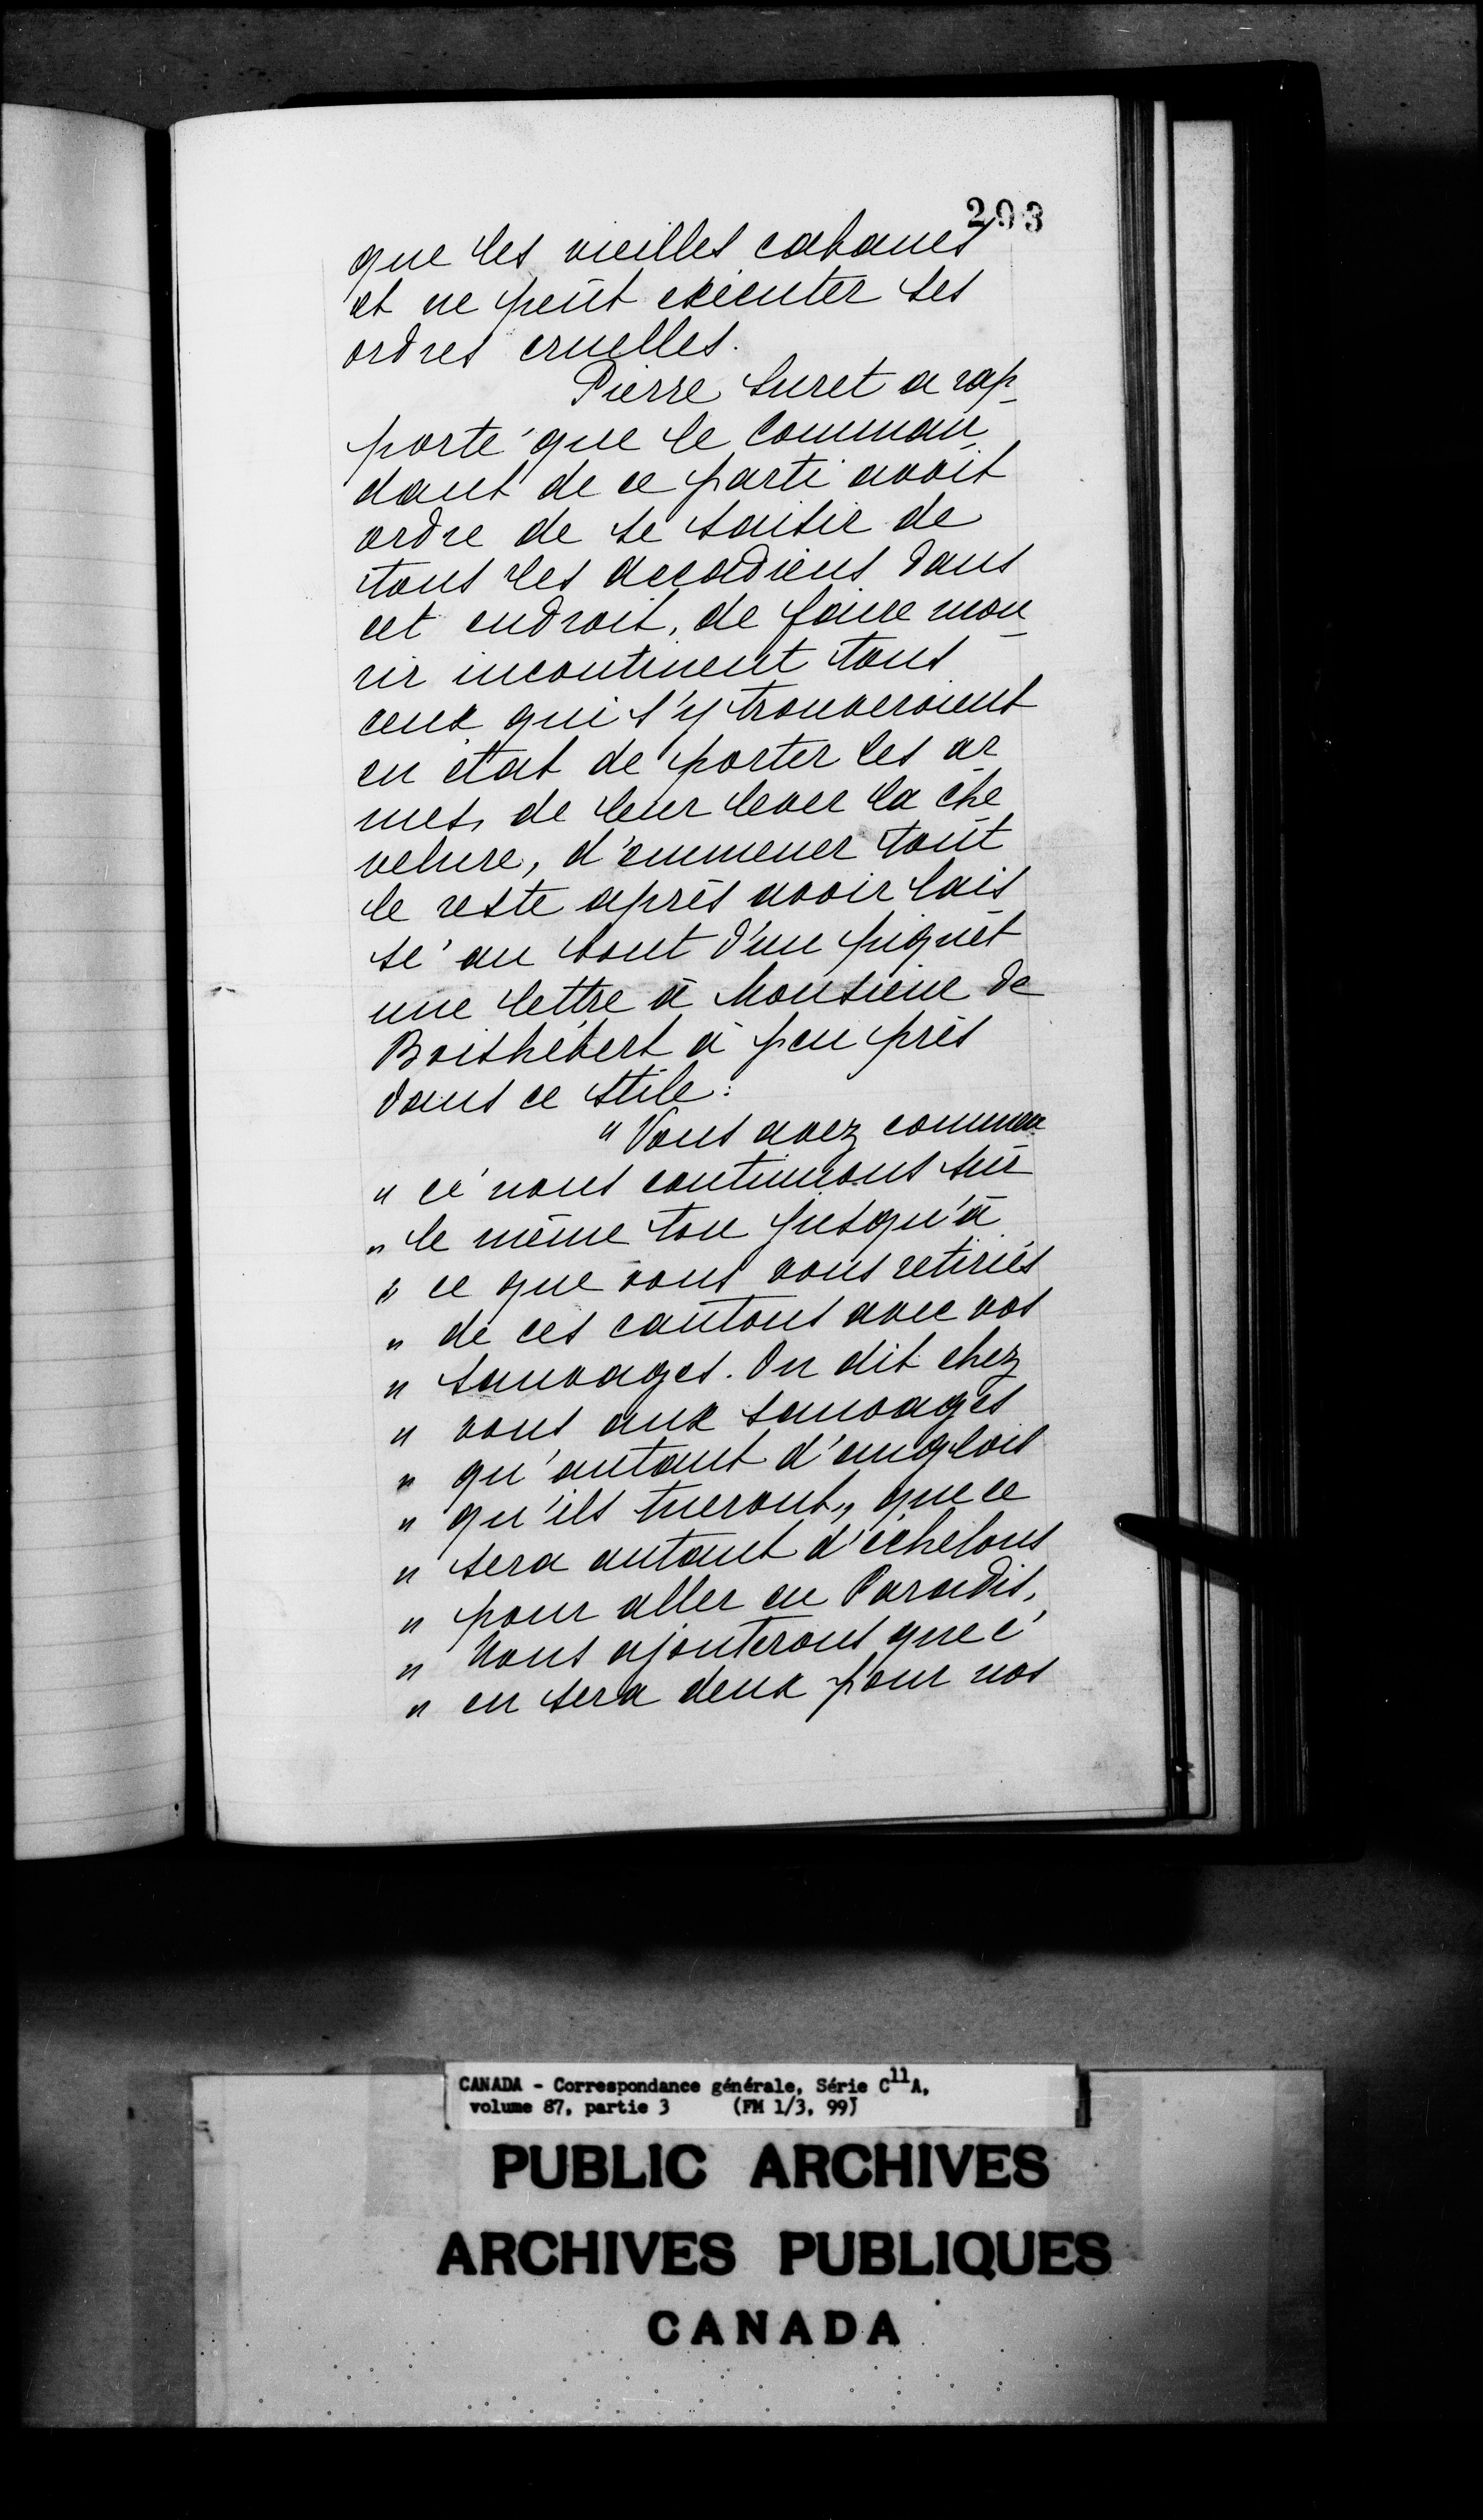 293
que les vieilles cabanes
et ne peut exécuter ses
ordres cruelles.
Pierre Suret a rap-
porté que le Comman-
dant de ce parti avoit
ordre de se saisir de
tous les accadiens dans
cet endroit, de faire mou-
rir incontinent tous
ceux qui s'y trouveroient
en état de porter les ar-
mes, de leur lever la che-
velure, d'emmener tout
le reste après avoir lais
sé au bout d'un piquet
une lettre à Monsieur de
Boishébert à peu près
dans ce stile:
"Vous avez commen
" cé nous continuons sur
" le même ton jusqu'à
" ce que vous vous retiriés
" de ces cantons avec vos
" sauvages. On dit chez
" vous aux sauvages
" qu'autant d'anglois
" qu'ils tueront, que ce
" sera autant d'échelons
" pour aller en Paradis,
" Nous ajouterons que c'
" en sera deux pour nos
CANADA - Correspondance générale, Série C11A,
volume 87, partie 3 (FM 1/3, 99)
PUBLIC ARCHIVES
ARCHIVES PUBLIQUES
CANADA